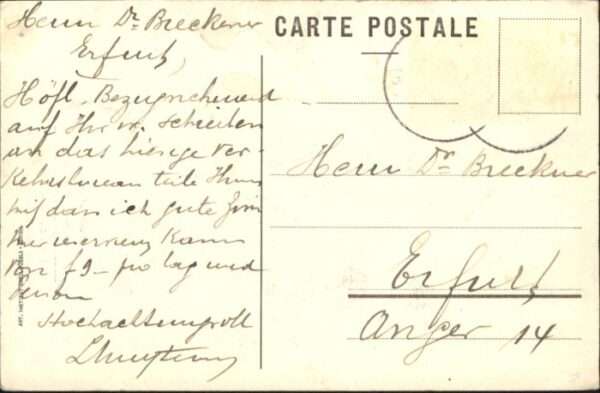 CARTE POSTALE
Herrn Dr Breckner
Erfurt
Höfl. Bezugnehmend
auf Ihr w. Schreiben
an das hiesige Ver-
kehrsbureau teile Ihnen
mit dass ich gute Zim
mer
kann
von f 9 – pro Tag
Hochachtungsvoll
Herrn Dr Breckner
Erfurt
Anger 14